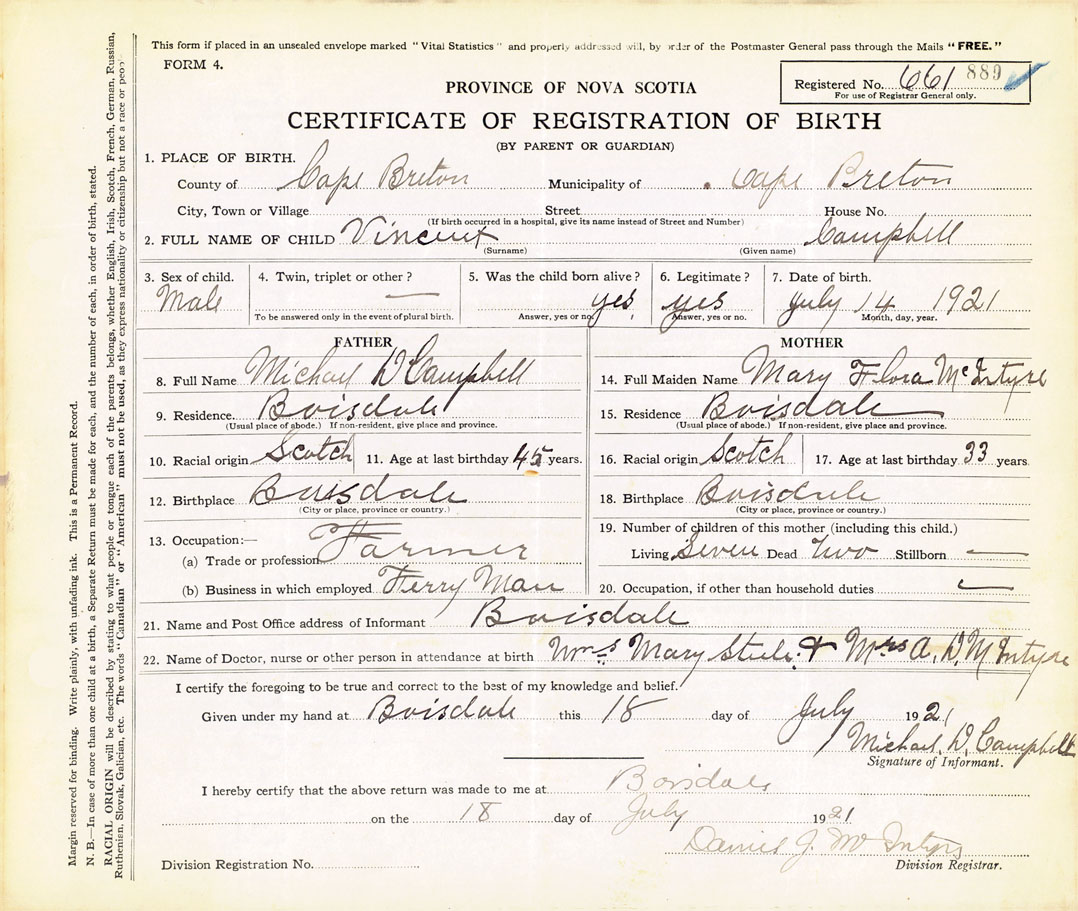 This form if placed in an unsealed envelope marked "Vital Statistics" and properly addressed will, by order of the Postmaster General pass through the Mails "FREE."
FORM 4.
Registered No. 661 889
For use of Registrar General only.
PROVINCE OF NOVA SCOTIA
CERTIFICATE OF REGISTRATION OF BIRTH
(BY PARENT OR GUARDIAN)
1. PLACE OF BIRTH.
County of Cape Breton Municipality of Cape Breton
City, Town or Village Street House No.
(If birth occurred in a hospital, give its name instead of Street and Number)
2. FULL NAME OF CHILD Vincent Campbell
(Surname) (Given name)
3. Sex of child. 4. Twin, triplet or other? 5. Was the child born alive? 6. Legitimate? 7. Date of birth.
Male — yes yes July 14 1921
To be answered only in the event of plural birth. Answer, yes or no. Answer, yes or no. Month, day, year.
FATHER
8. Full Name Michael D Campbell
9. Residence. Boisdale
(Usual place of abode.) If non-resident, give place and province.
10. Racial origin Scotch 11. Age at last birthday 45 years.
12. Birthplace Boisdale
(City or place, province or country.)
13. Occupation:—
(a) Trade or profession Farmer
(b) Business in which employed Ferry Man
MOTHER
14. Full Maiden Name Mary Flora McIntyre
15. Residence Boisdale
(Usual place of abode.) If non-resident, give place and province.
16. Racial origin Scotch 17. Age at last birthday 33 years
18. Birthplace Boisdale
(City or place, province or country.)
19. Number of children of this mother (including this child.)
Living Seven Dead Two Stillborn —
20. Occupation, if other than household duties —
21. Name and Post Office address of Informant Boisdale
22. Name of Doctor, nurse or other person in attendance at birth Mrs Mary Steele & Mrs A. D. McIntyre
I certify the foregoing to be true and correct to the best of my knowledge and belief.
Given under my hand at Boisdale this 18 day of July 1921
Michael D. Campbell
Signature of Informant.
I hereby certify that the above return was made to me at Boisdale
on the 18 day of July 1921
Daniel J. McIntyre
Division Registration No. Division Registrar.
Margin reserved for binding. Write plainly, with unfading ink. This is a Permanent Record.
N. B.—In case of more than one child at a birth, a Separate Return must be made for each, and the number of each, in order of birth, stated.
RACIAL ORIGIN will be described by stating to what people or tongue each of the parents belongs, whether English, Irish, Scotch, French, German, Russian,
Ruthenian, Slovak, Galician, etc. The words "Canadian" or "American" must not be used, as they express nationality or citizenship but not a race or people